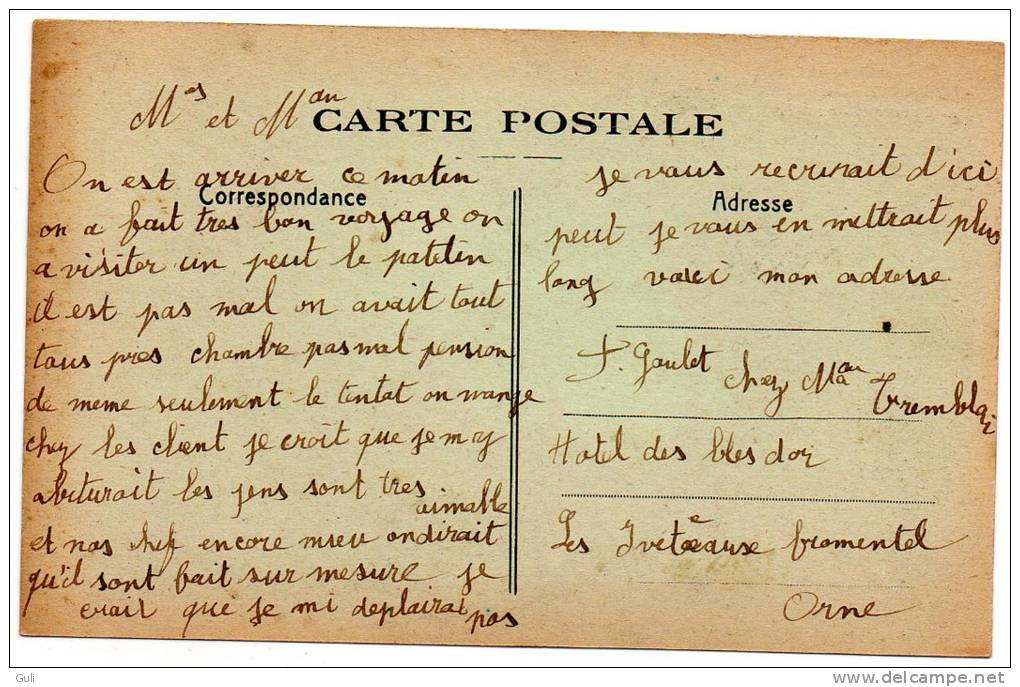 Mrs et Mdu
CARTE POSTALE
On est arriver ce matin
Correspondance
on a fait tres bon voyage on
a visiter un peut le patelin
il est pas mal on avait tout
tous pres chambre pas mal pension
de meme seulement le on mange
chez les client je croit que je m y
abiturait les jens sont tres
aimable
et nos chef encore mieu on dirait
qu'il sont fait sur mesure je
crait que je mi deplairai pas
je vous recrirait d'ici
Adresse
peut je vous en mettrait plus
long voici mon adresse
Goulet
chez
Tremblai
Hotel des bles dor
Les fromentel
Orne
Guli
www.delcampe.net